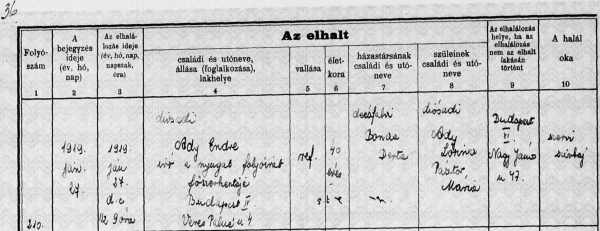 36
Az elhalt
Folyó-
szám
A
bejegyzés
ideje
(év, hó,
nap)
Az elhalá-
lozás ideje
(év, hó, nap,
napszak,
óra)
családi és utóneve,
állása (foglalkozása),
lakhelye
vallása
élet-
kora
házastársának
családi és utó-
neve
szüleinek
családi és utóneve
Az elhalálozás
helye, ha az
elhalálozás
nem az elhalt
lakásán
történt
A halál
oka
1
2
3
4
5
6
7
8
9
10
210.
1919.
jan.
27
1919
jan
27.
d. e.
óra
diósadi
Ady Endre
író a nyugat folyóirat
főszerkesztője
Budapest IV.
Veres Pálné u 4
ref.
40
éves
Boncza
Berta
diósadi
Ady
Lőrinc
Pásztor
Mária
Budapest
VI.
Nagy János
u 47.